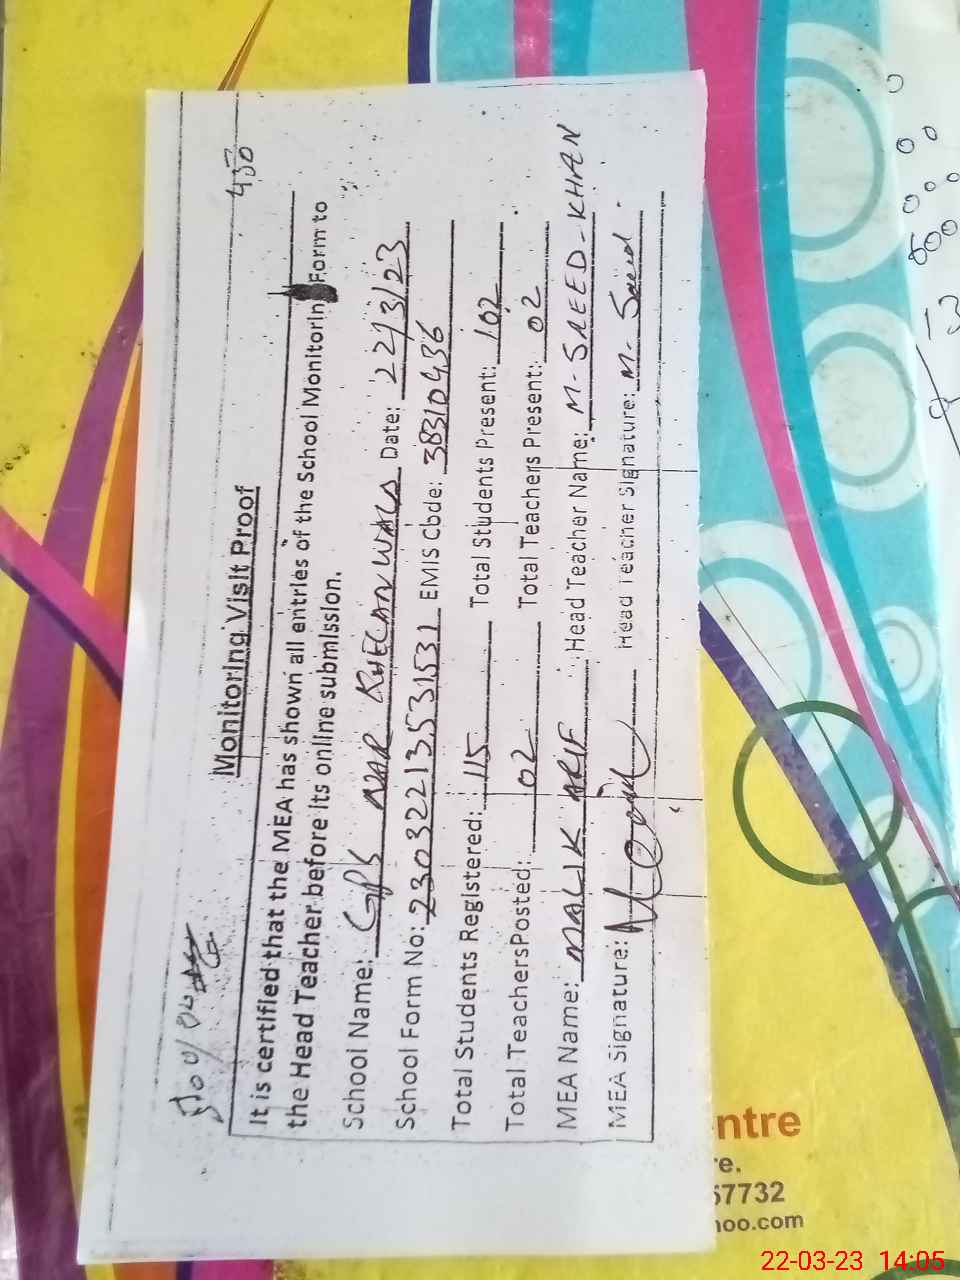 450
Monitoring Visit Proof
It is certified that the MEA has shown all entries of the School Monitorin Form to
the Head Teacher before its online submission.
School Name: GPS NAR KHELANWALA Date: 22/3/23
School Form No: 2303221353153 EMIS Code: 38310436
Total Students Registered: 115 Total Students Present: 102
Total Teachers Posted: 02 Total Teachers Present: 02
MEA Name: MALIK ARIF Head Teacher Name: M-SAEED-KHAN
MEA Signature: Head Teacher Signature: M- Saeed
600
ntre
re.
67732
hoo.com
22-03-23 14:05